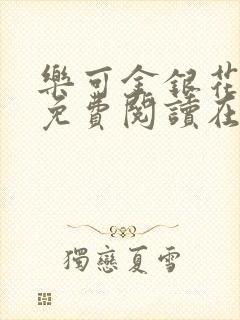 樂可金銀花
免費閱讀在
獨戀夏雪